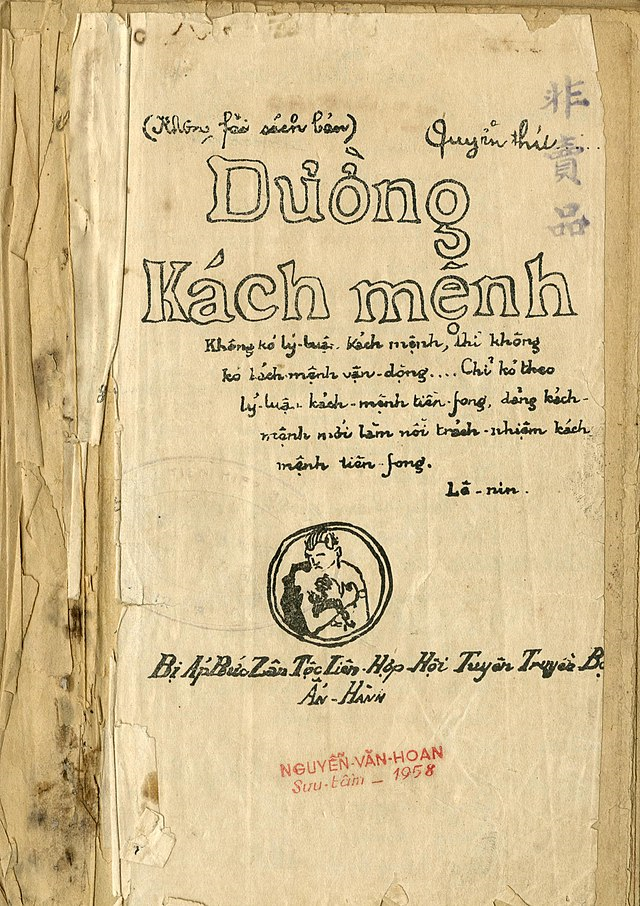 (Không fải sách bán)
Quyển thứ
非賣品
Đường
Kách mệnh
Không kó lý-luận kách mệnh, thì không
kó kách mệnh vận-động.... Chỉ kó theo
lý-luận kách-mệnh tiền-fong, đảng kách-
mệnh mới làm nổi trách-nhiệm kách
mệnh tiền-fong.
Lê-nin.
Bị Áp Bức Zân Tộc Liên-Hợp-Hội Tuyên Truyền Bộ
Ấn-Hành
NGUYỄN-VĂN-HOAN
Sưu-tầm – 1958